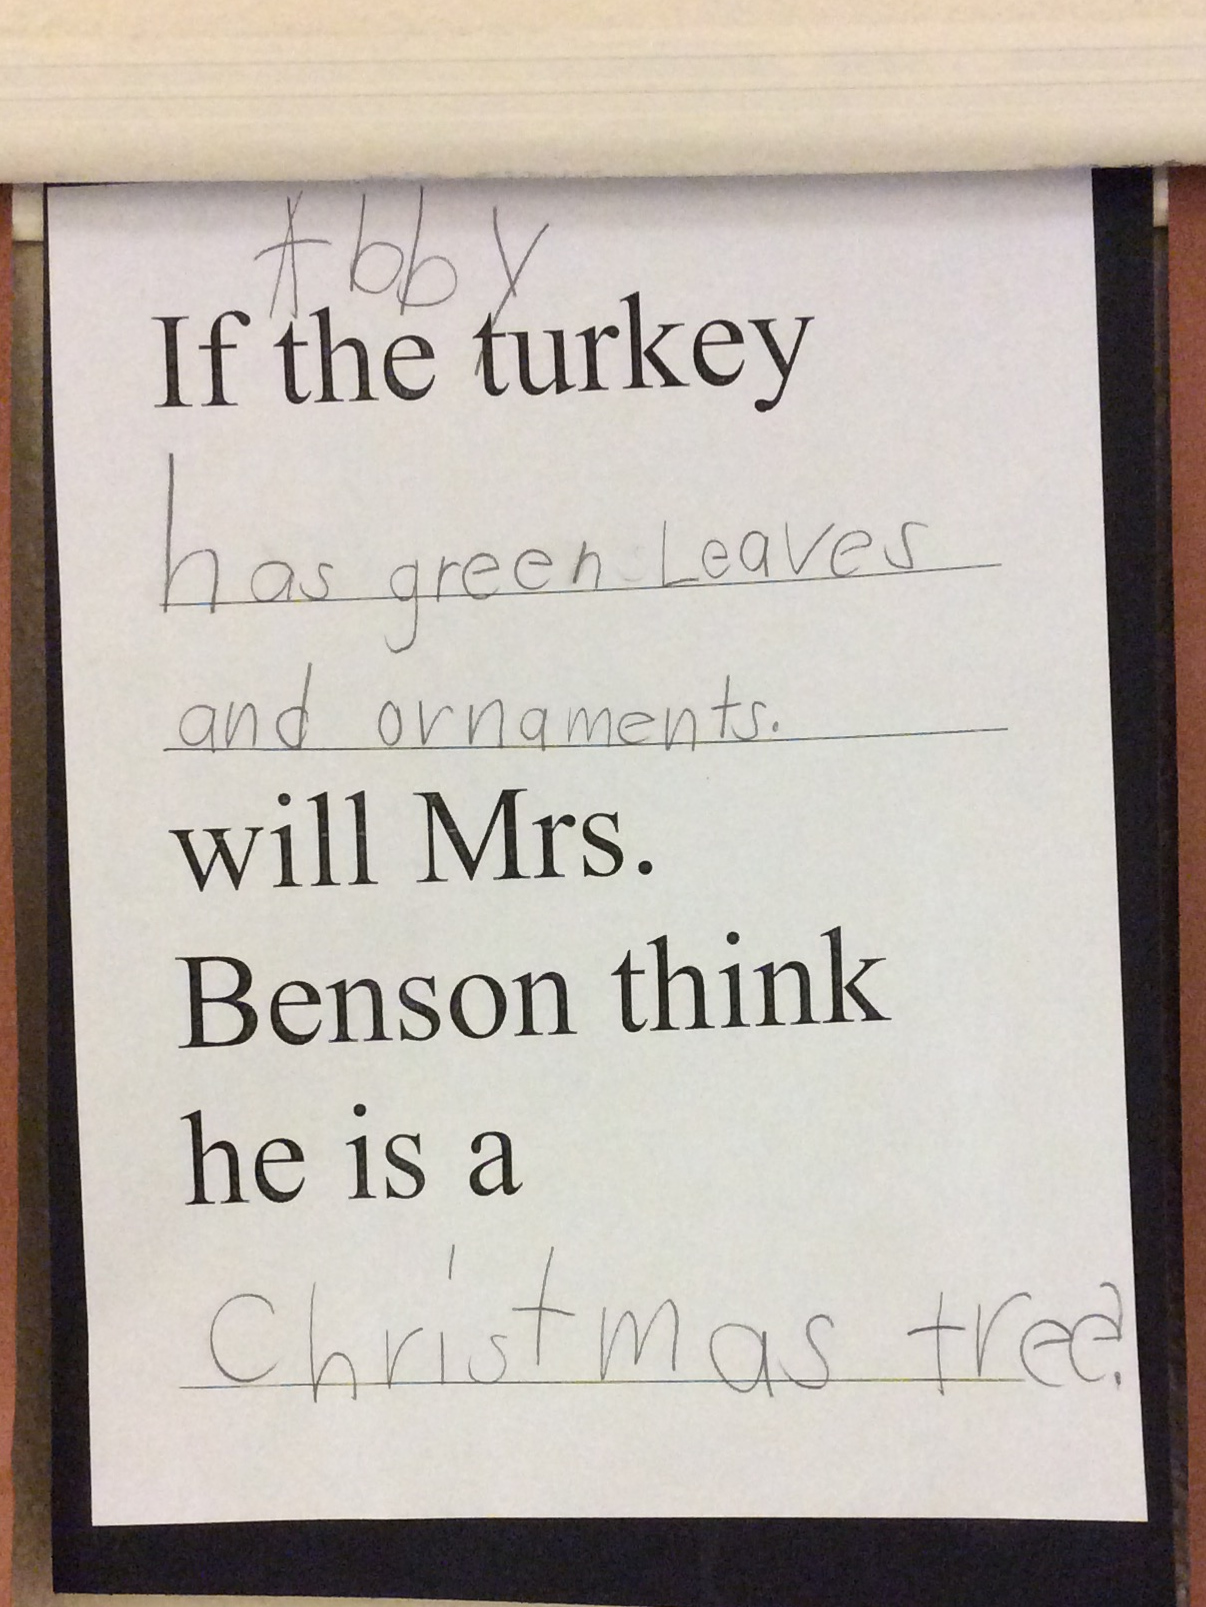 Abby
If the turkey
has green Leaves
and ornaments.
will Mrs.
Benson think
he is a
Christmas tree?